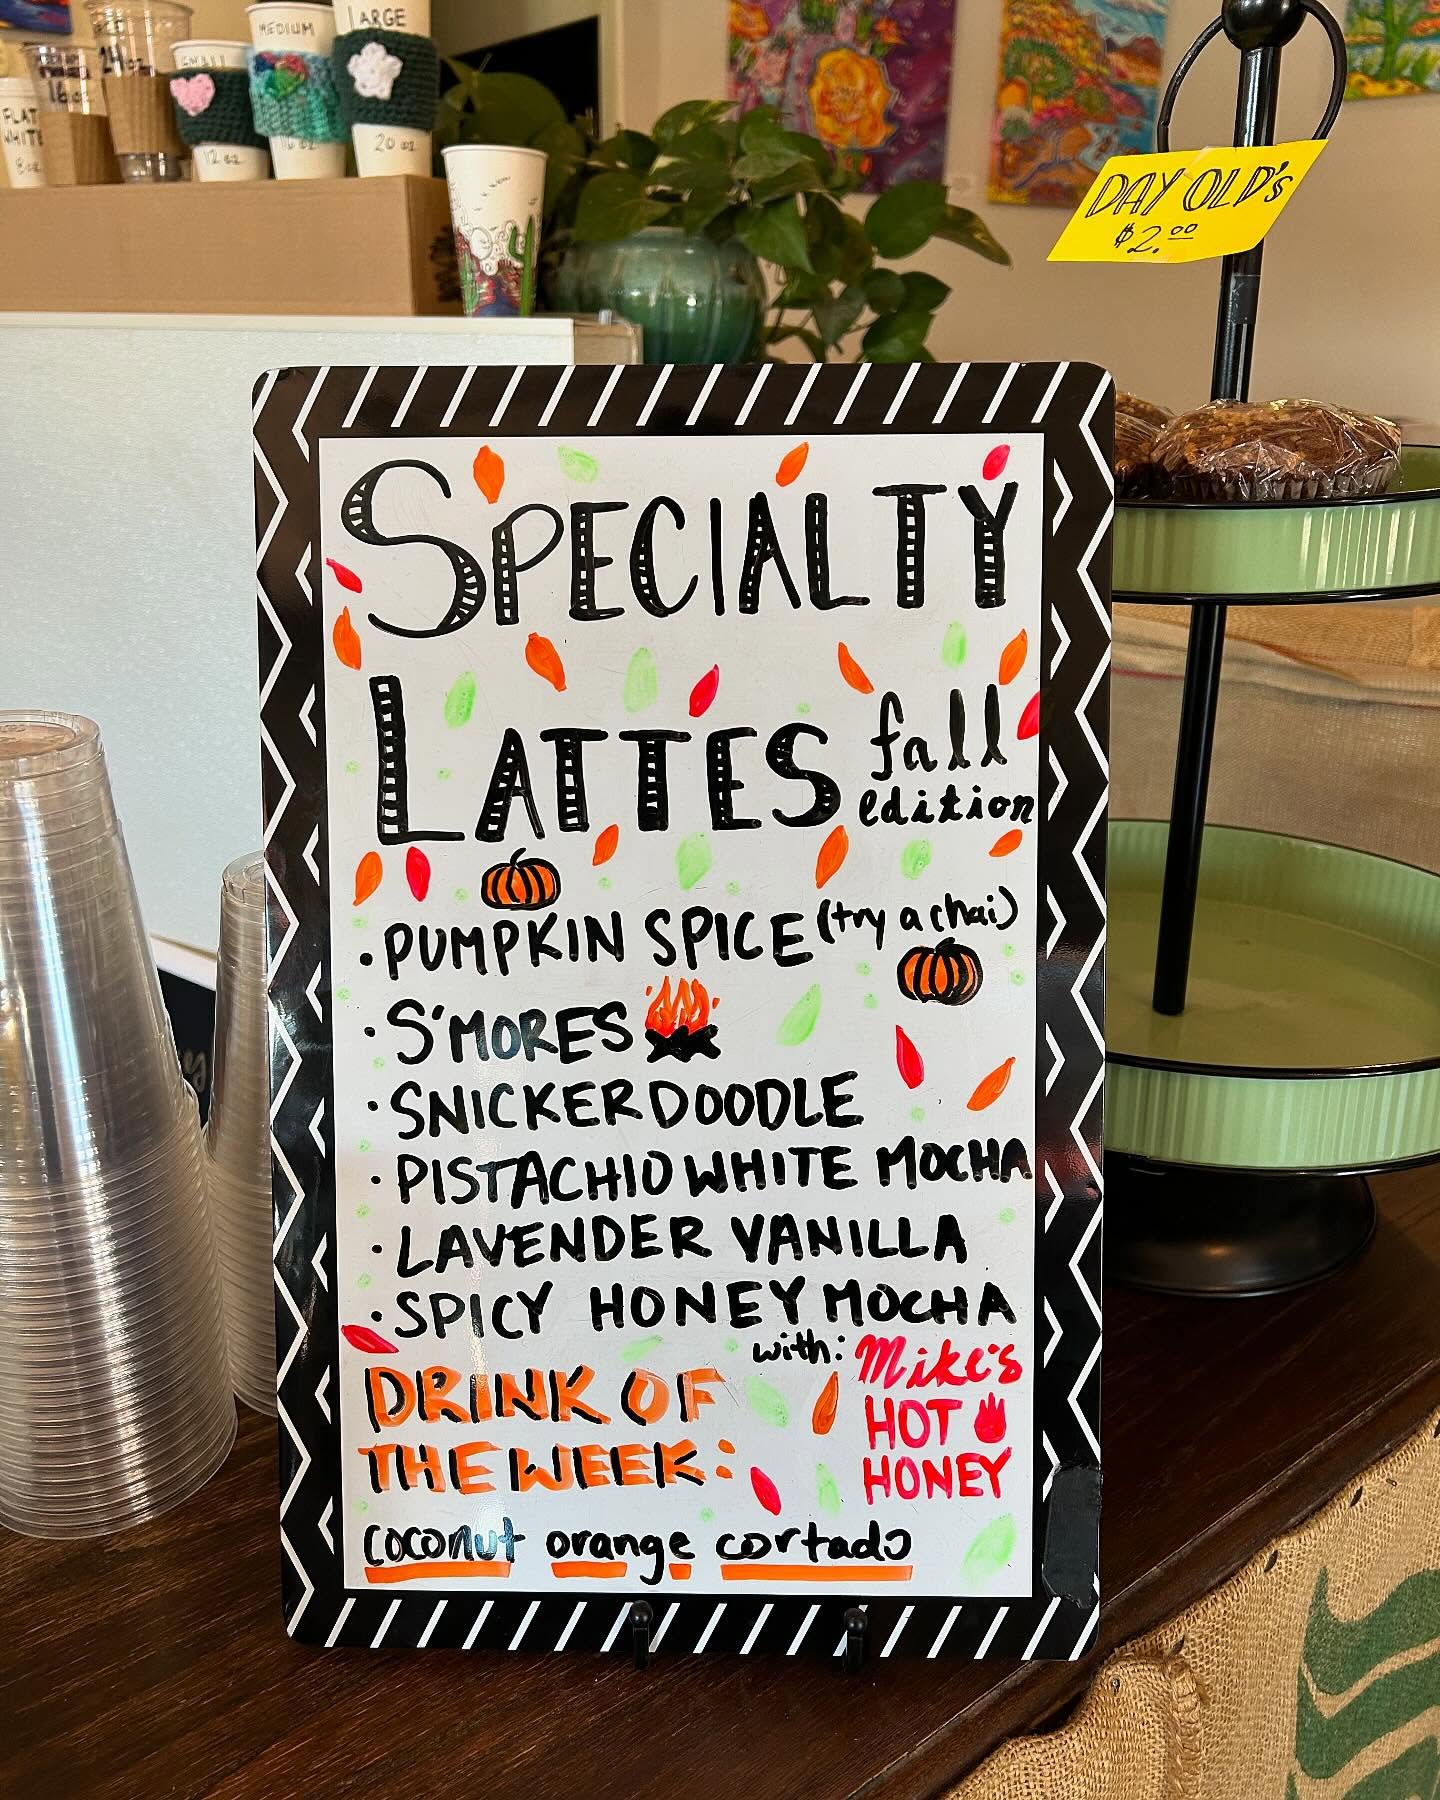 LARGE
MEDIUM
SMALL
24oz
16oz
FLAT
WHITE
8oz
12 oz
16 oz
20 oz
DAY OLD's
$2.00
SPECIALTY
LATTES fall
edition
• PUMPKIN SPICE (try a chai)
• S'MORES
• SNICKERDOODLE
• PISTACHIO WHITE MOCHA
• LAVENDER VANILLA
• SPICY HONEY MOCHA
with: Mike's
HOT
HONEY
DRINK OF
THE WEEK:
coconut orange cortado